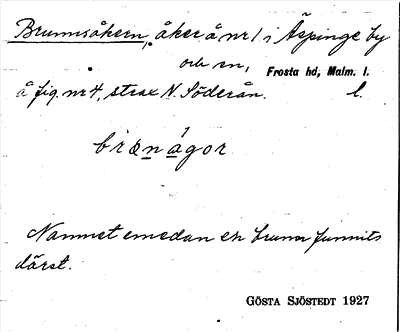 Brunnsåkern, åker å nr 1 i Äspinge by
och en, Frosta hd, Malm. l.
å fig. nr 4, strax N. Söderån. l.
brønågor
Namnet emedan en brunn funnits
därst.
GÖSTA SJÖSTEDT 1927